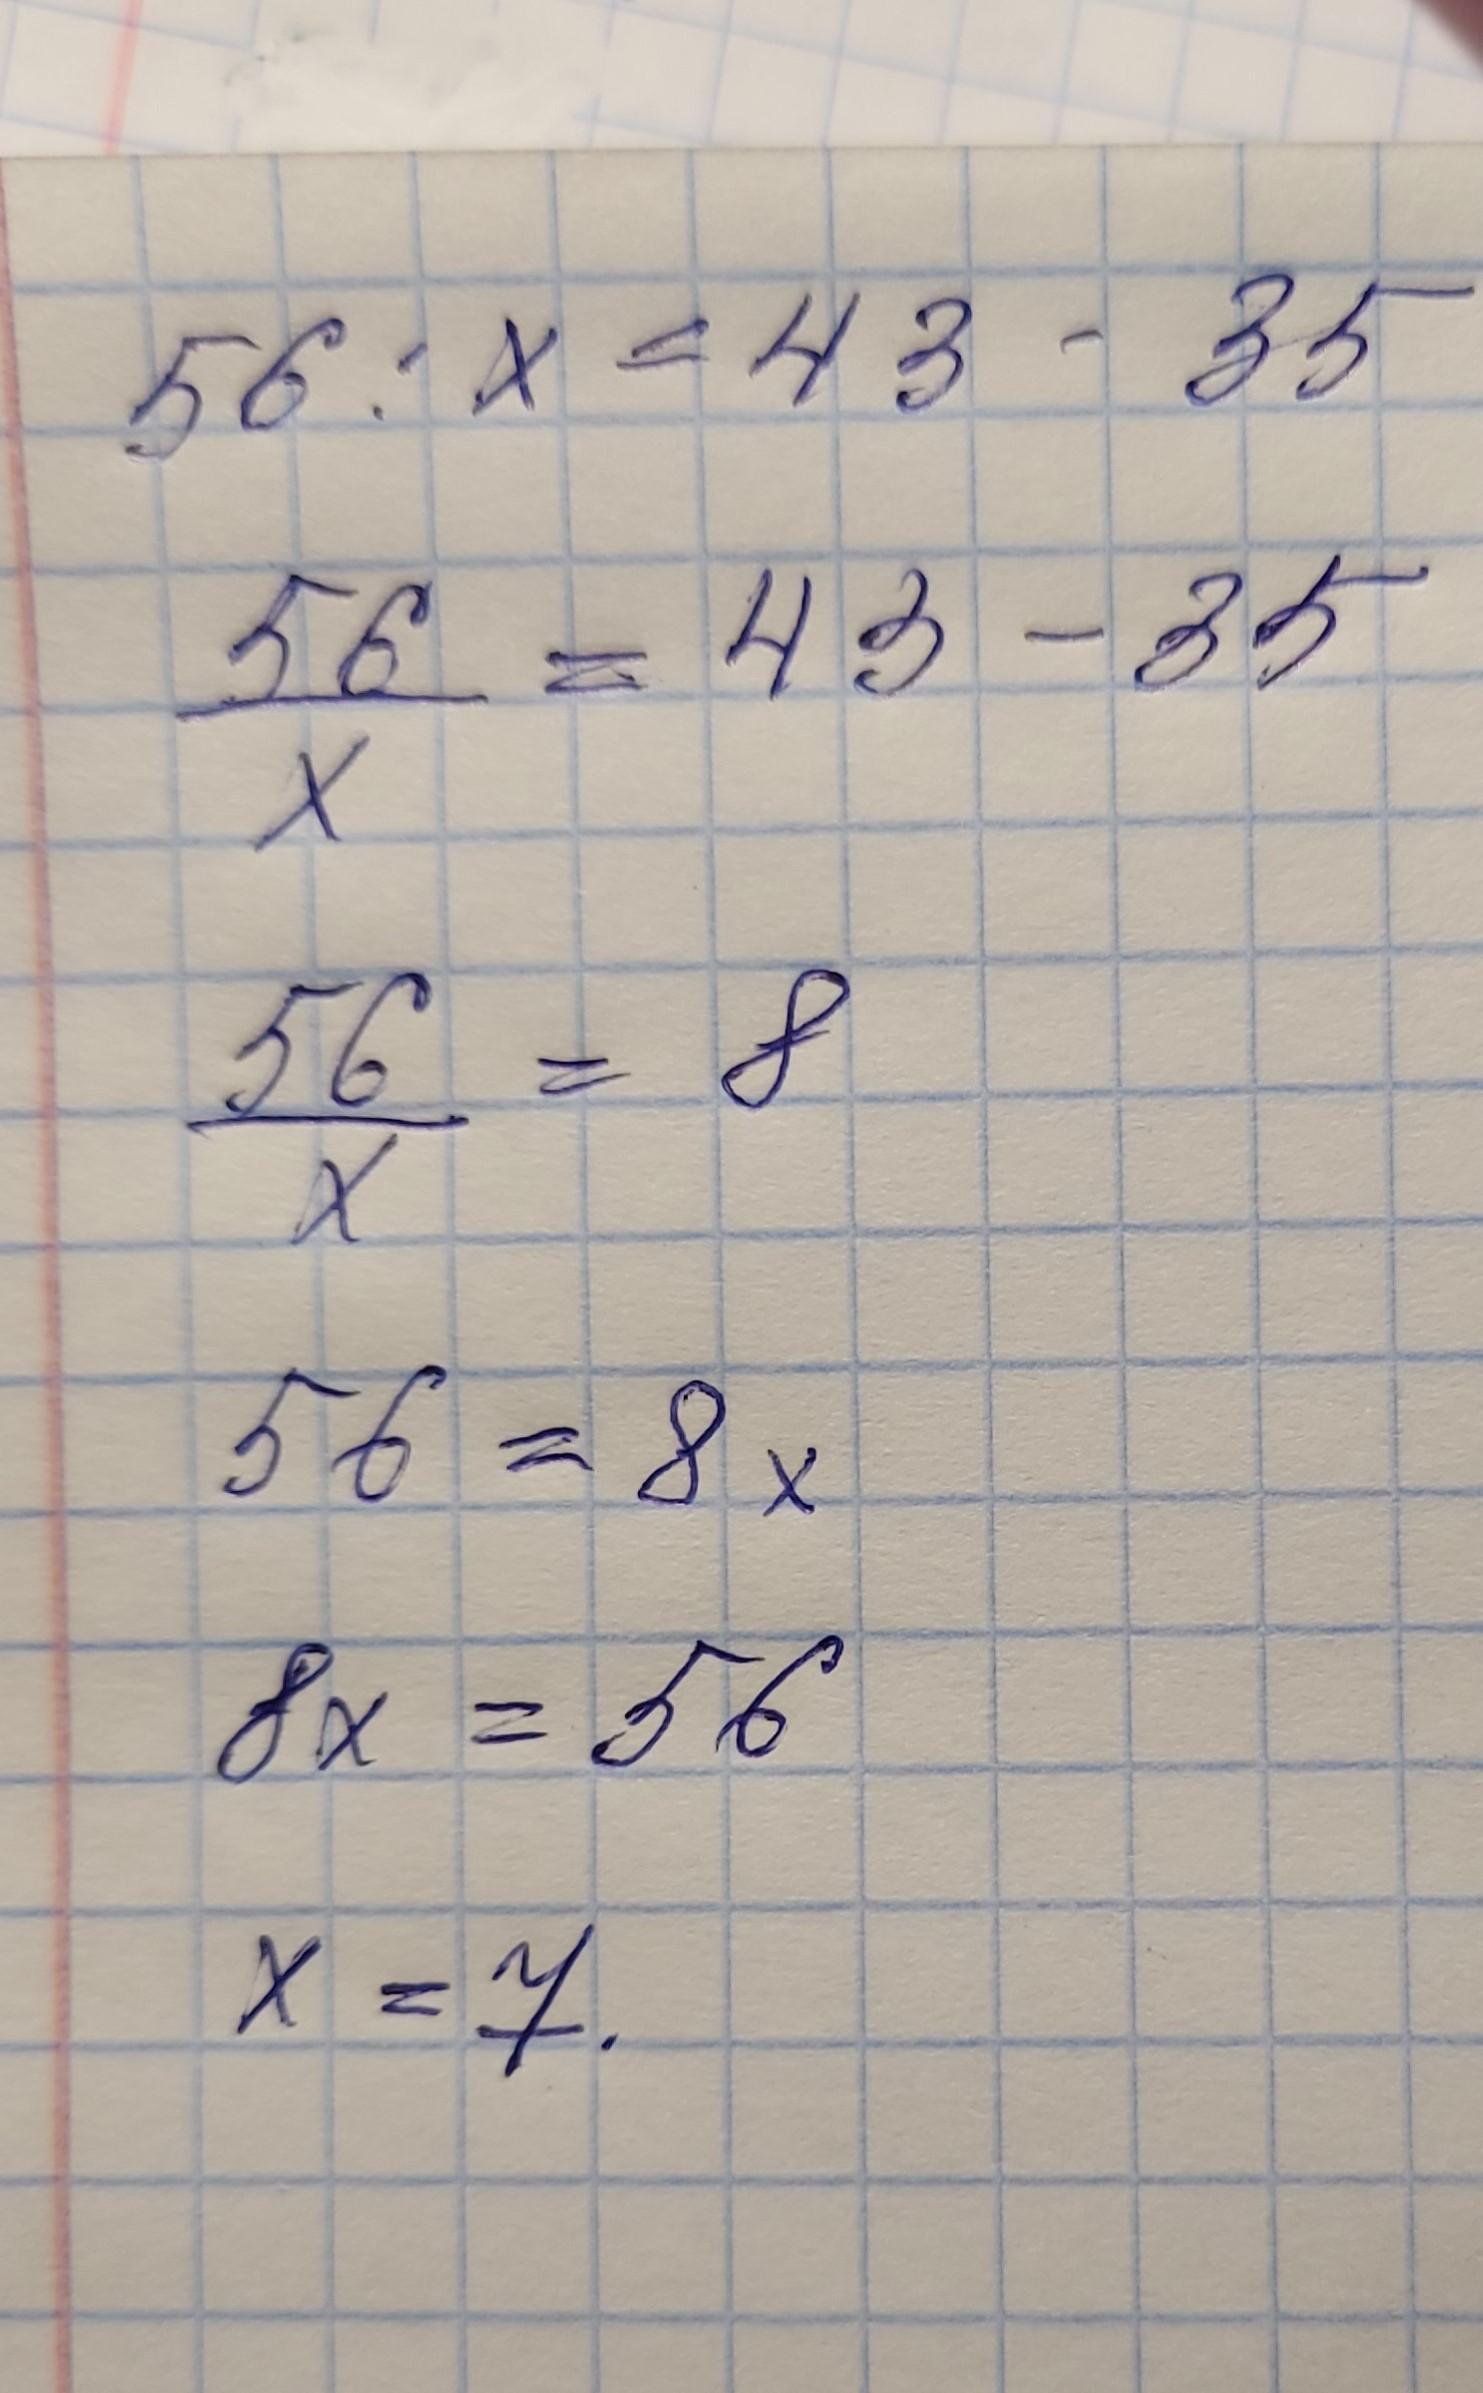 56 : x = 43 - 35
56/x = 43 - 35
56/x = 8
56 = 8x
8x = 56
x = 7.